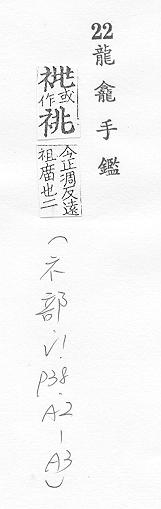 22 龍龕手鑑
或作祧
今正凋反遠
祖廣也二
(示部.V!
P38.
A2-
A3)